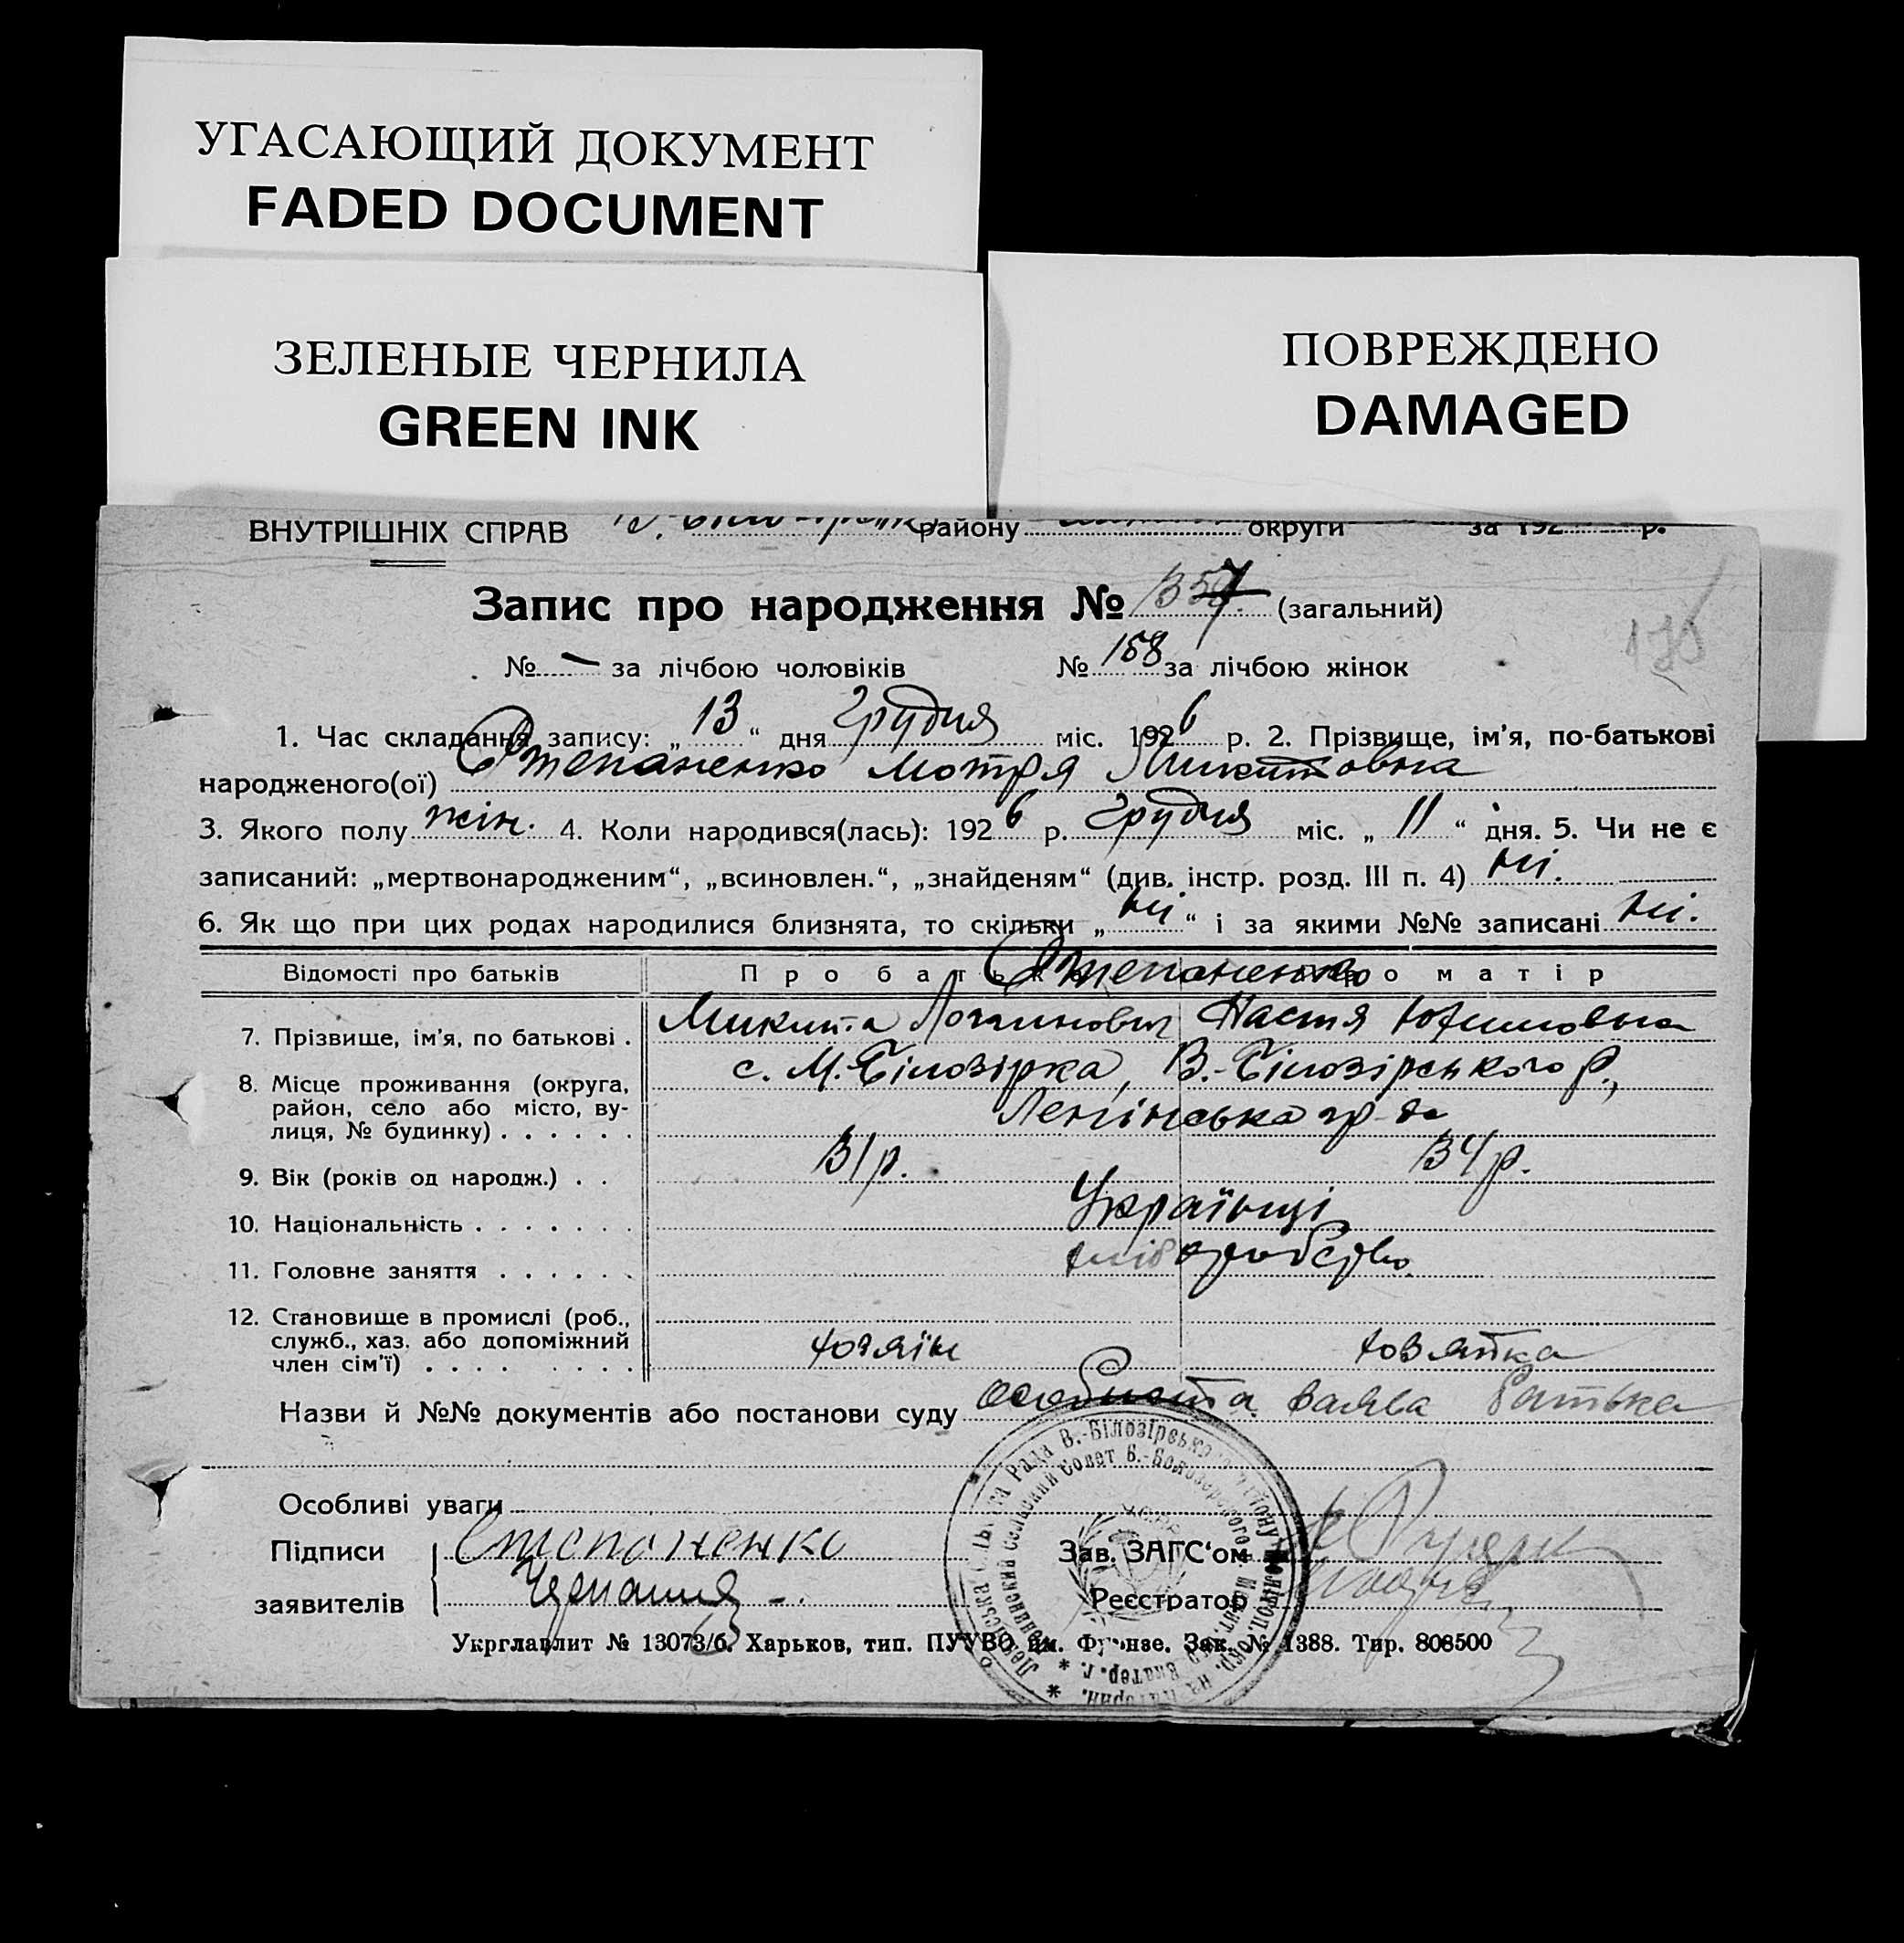 УГАСАЮЩИЙ ДОКУМЕНТ
FADED DOCUMENT
ЗЕЛЕНЫЕ ЧЕРНИЛА
GREEN INK
ПОВРЕЖДЕНО
DAMAGED
ВНУТРІШНІХ СПРАВ району округи за 192 р.
Запис про народження № 357 (загальний)
№ — за лічбою чоловіків № 158 за лічбою жінок
1. Час складання запису: „13“ дня Грудня міс. 1926 р. 2. Прізвище, ім’я, по-батькові
народженого(ої) Степаненко Мотря Микитовна
3. Якого полу жін. 4. Коли народився(лась): 1926 р. Грудня міс. „11“ дня. 5. Чи не є
записаний: „мертвонародженим“, „всиновлен.“, „знайденям“ (див. інстр. розд. III п. 4) ні.
6. Як що при цих родах народилися близнята, то скільки „ні“ і за якими №№ записані ні.
Відомості про батьків Про батька Про матір
Степаненко
7. Прізвище, ім’я, по батькові . Микита Логгинович Настя Юхимовна
8. Місце проживання (округа, район, село або місто, ву-лиця, № будинку) . . . . . . с. М.-Білозірка, В.-Білозірського р.,
Ленінська
9. Вік (років од народж.) . . 31 р. 34 р.
10. Національність . . . . . . . Українці
11. Головне заняття . . . . . . хліборобство
12. Становище в промислі (роб.,
служб., хаз. або допоміжний
член сім’ї) . . . . . . . . хозяїн хозяйка
Назви й №№ документів або постанови суду особиста заява батька
Особливі уваги
Підписи Степоненко Зав. ЗАГС‘ом
заявителів Реєстратор
Укрглавлит № 13073/б. Харьков, тип. ПУУВО им. Фрунзе. Зак. № 1388. Тир. 808500